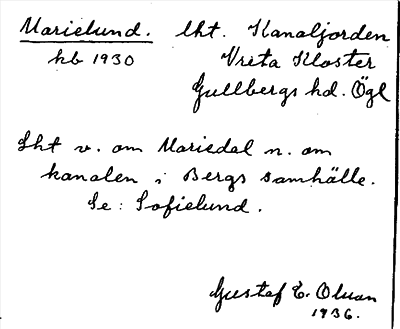 Marielund. lht. Kanaljorden
hb 1930 Vreta Kloster
Gullbergs hd. Ögl
Lht v. om Mariedal n. om
kanalen i Bergs samhälle.
Se: Sofielund.
Gustaf E. Olsson
1936.